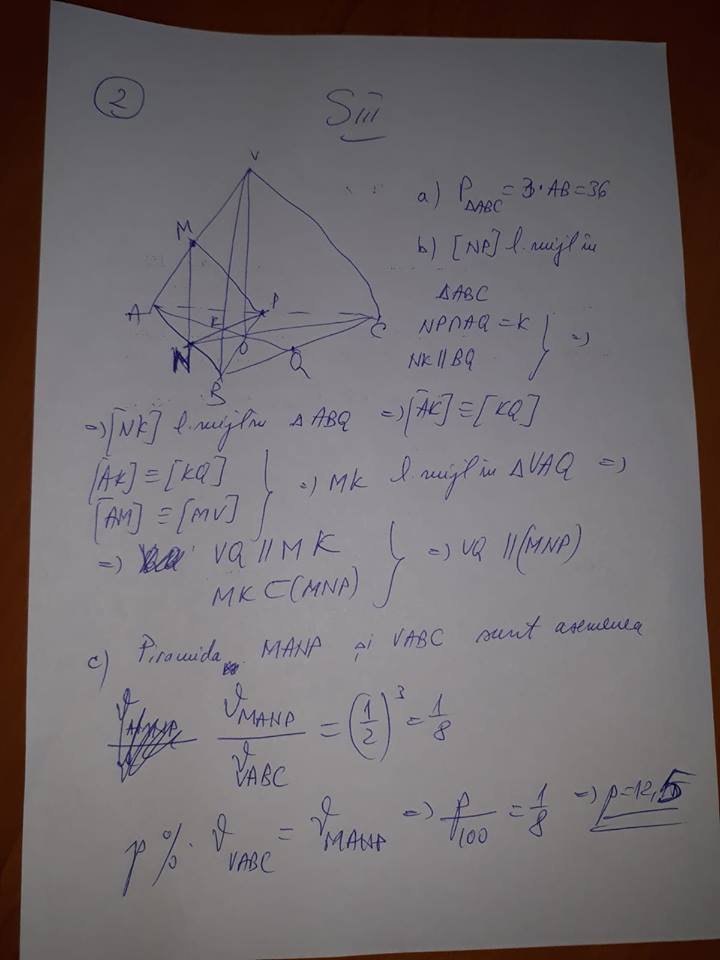 2
SIII
V
M
A
P
K
C
N
O
Q
B
a) P△ABC = 3·AB = 36
b) [NP] l. mijl în
△ABC
NP∩AQ = K
NK ∥ BQ } =>
=> [NK] l. mijl în △ABQ => [AK] ≡ [KQ]
[AK] ≡ [KQ]
[AM] ≡ [MV] } => MK l. mijl în △VAQ =>
=> VQ ∥ MK
MK ⊂ (MNP) } => VQ ∥ (MNP)
c) Piramida MANP și VABC sunt asemenea
𝒱MANP / 𝒱VABC = (1/2)³ = 1/8
p% · 𝒱VABC = 𝒱MANP => p/100 = 1/8 => p = 12,5